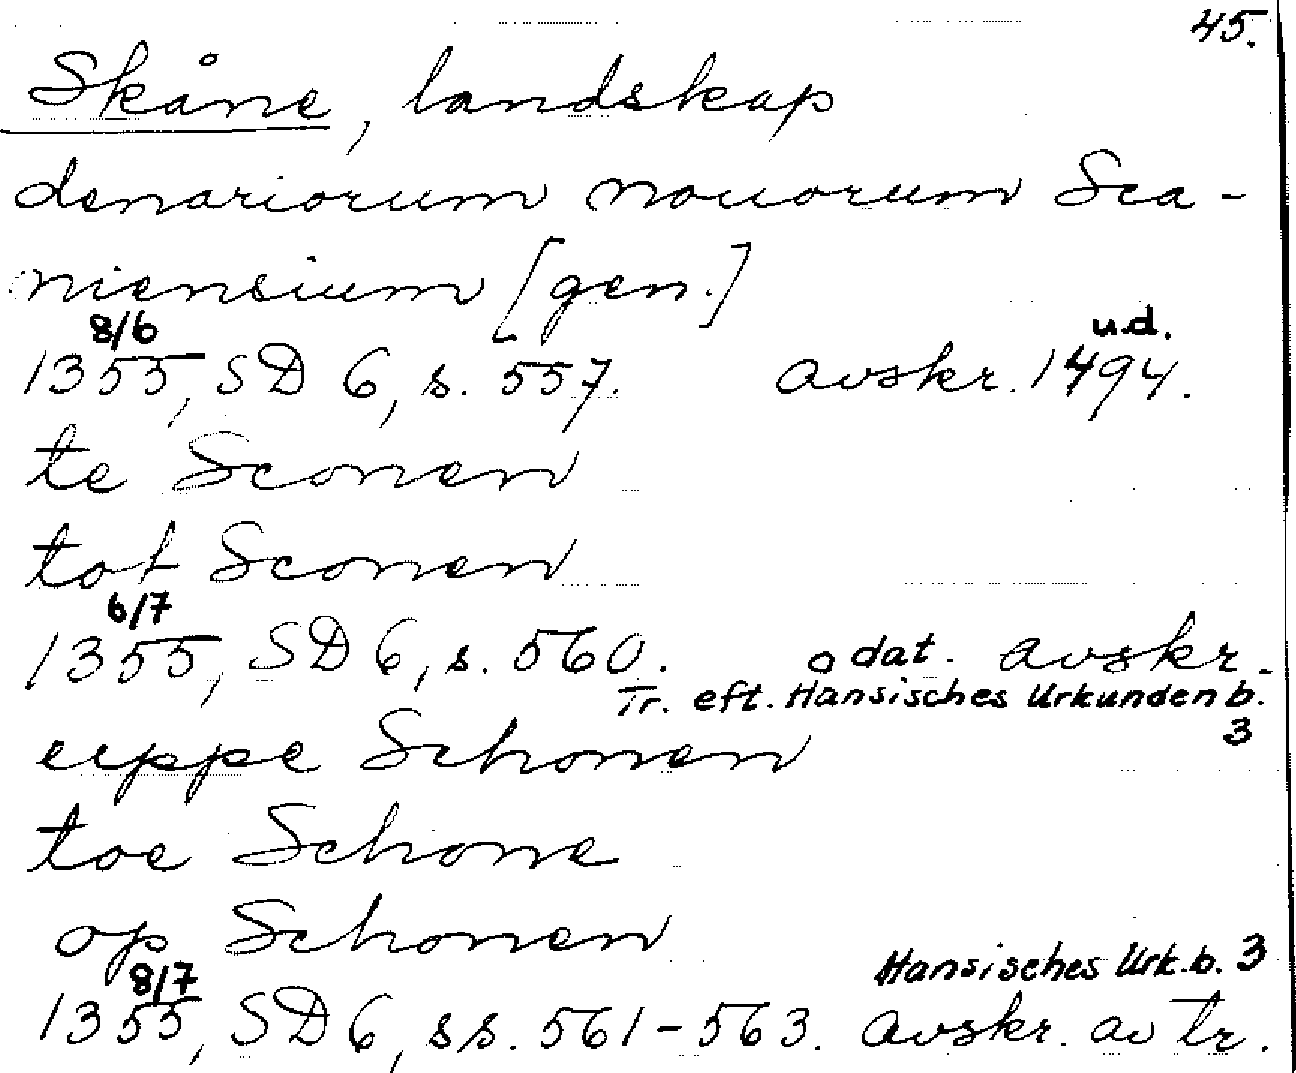 45.
Skåne, landskap
denariorum nouorum Sca-
niensium [gen.]
8/6 u.d.
1355, SD 6, s. 557. avskr. 1494.
te Sconen
tot Sconen
6/7
1355, SD 6, s. 560. odat. avskr.
Tr. eft. Hansisches Urkundenb.
3
uppe Schonen
toe Schone
op Schonen
8/7 Hansisches Urk.b. 3
1355, SD 6, ss. 561-563. avskr. av tr.